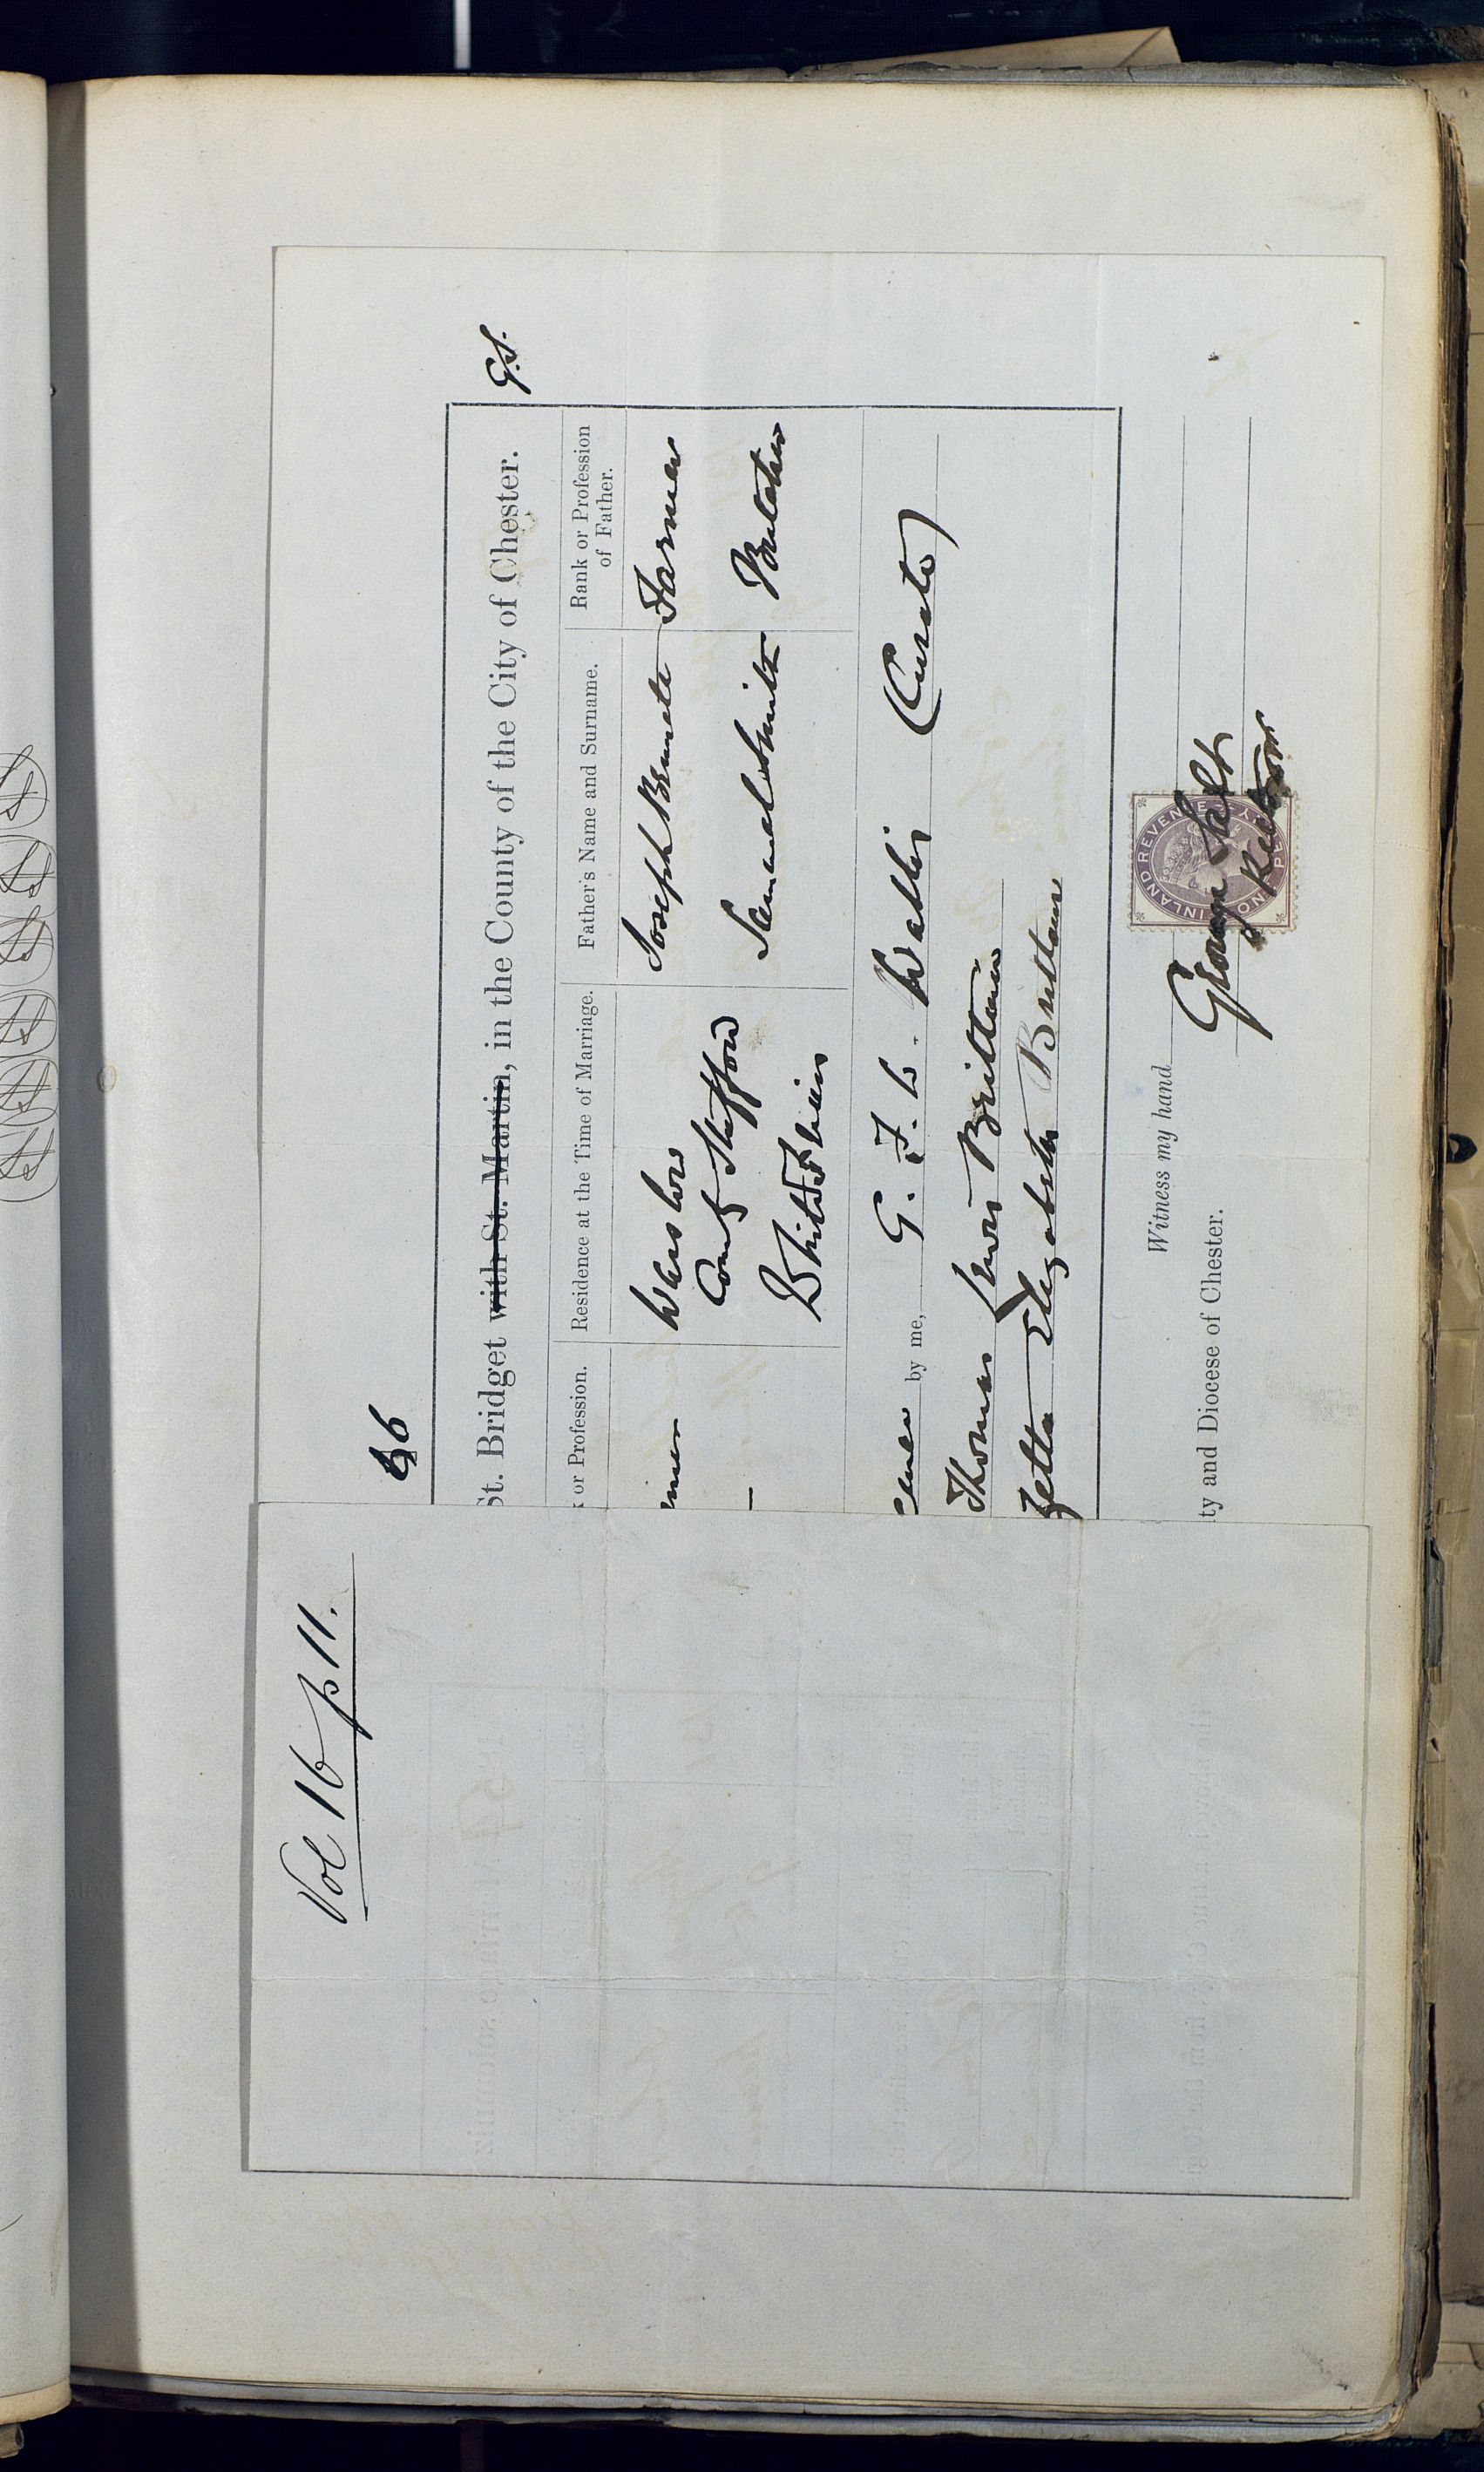 Vol 16 p 11.
G.S.
St. Bridget with St. Martin, in the County of the City of Chester.
or Profession.
Residence at the Time of Marriage.
Father's Name and Surname.
Rank or Profession
of Father.
Joseph Bennett
Farmer
County Stafford
Samuel Smith
by me,
G. F.
(Curate)
Thomas Lewis Brittain
Elizabeth Brittain
Witness my hand
George Salt
Rector
INLAND REVENUE
ONE PENNY
ty and Diocese of Chester.